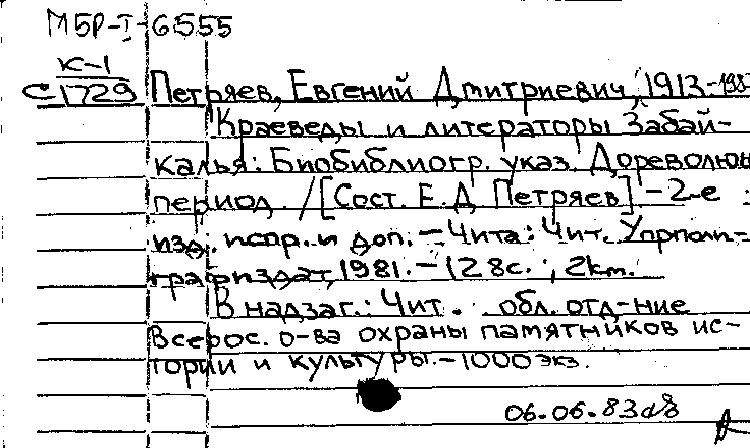 МБР-I-6555
К-1
С1729 Петряев, Евгений Дмитриевич, 1913-198
Краеведы и литераторы Забай-
калья: Биобиблиогр. указ. Дореволюц
период. / [Сост. Е. Д. Петряев] - 2-е
изд., испр. и доп. - Чита: Чит. Упрполи-
графиздат, 1981. - 128с.; 2км.
В надзаг.: Чит. обл. отд-ние
Всерос. о-ва охраны памятников ис-
тории и культуры. - 1000 экз.
06.06.83